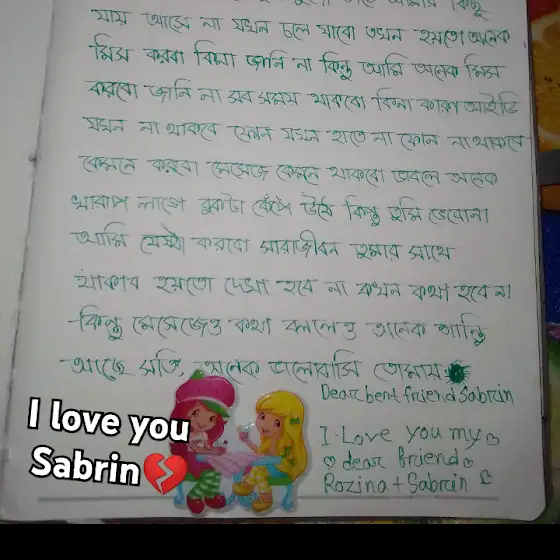 যায় আসে না যখন চলে যাবো তখন হয়তো অনেক
মিস করবা কিনা জানি না কিন্তু আমি অনেক মিস
করবো জানি না সব সময় থাকবো কিনা কারণ আইডি
যখন না থাকবে ফোন যখন হাতে না ফোন না থাকবে
কেমনে করবো মেসেজ কেমনে থাকবো ভাবলে অনেক
খারাপ লাগে বুকটা কেঁপে উঠে কিন্তু তুমি ভেবোনা
আমি চেষ্টা করবো সারাজীবন তুমার সাথে
থাকার হয়তো দেখা হবে না কখন কথা হবে না
কিন্তু মেসেজেও কথা বললেও অনেক শান্তি
আছে সত্যি অনেক ভালোবাসি তোমায়
Dear bent friend Sabrin
I Love you my
dear friend
Rozina + Sabrin
I love you
Sabrin💔